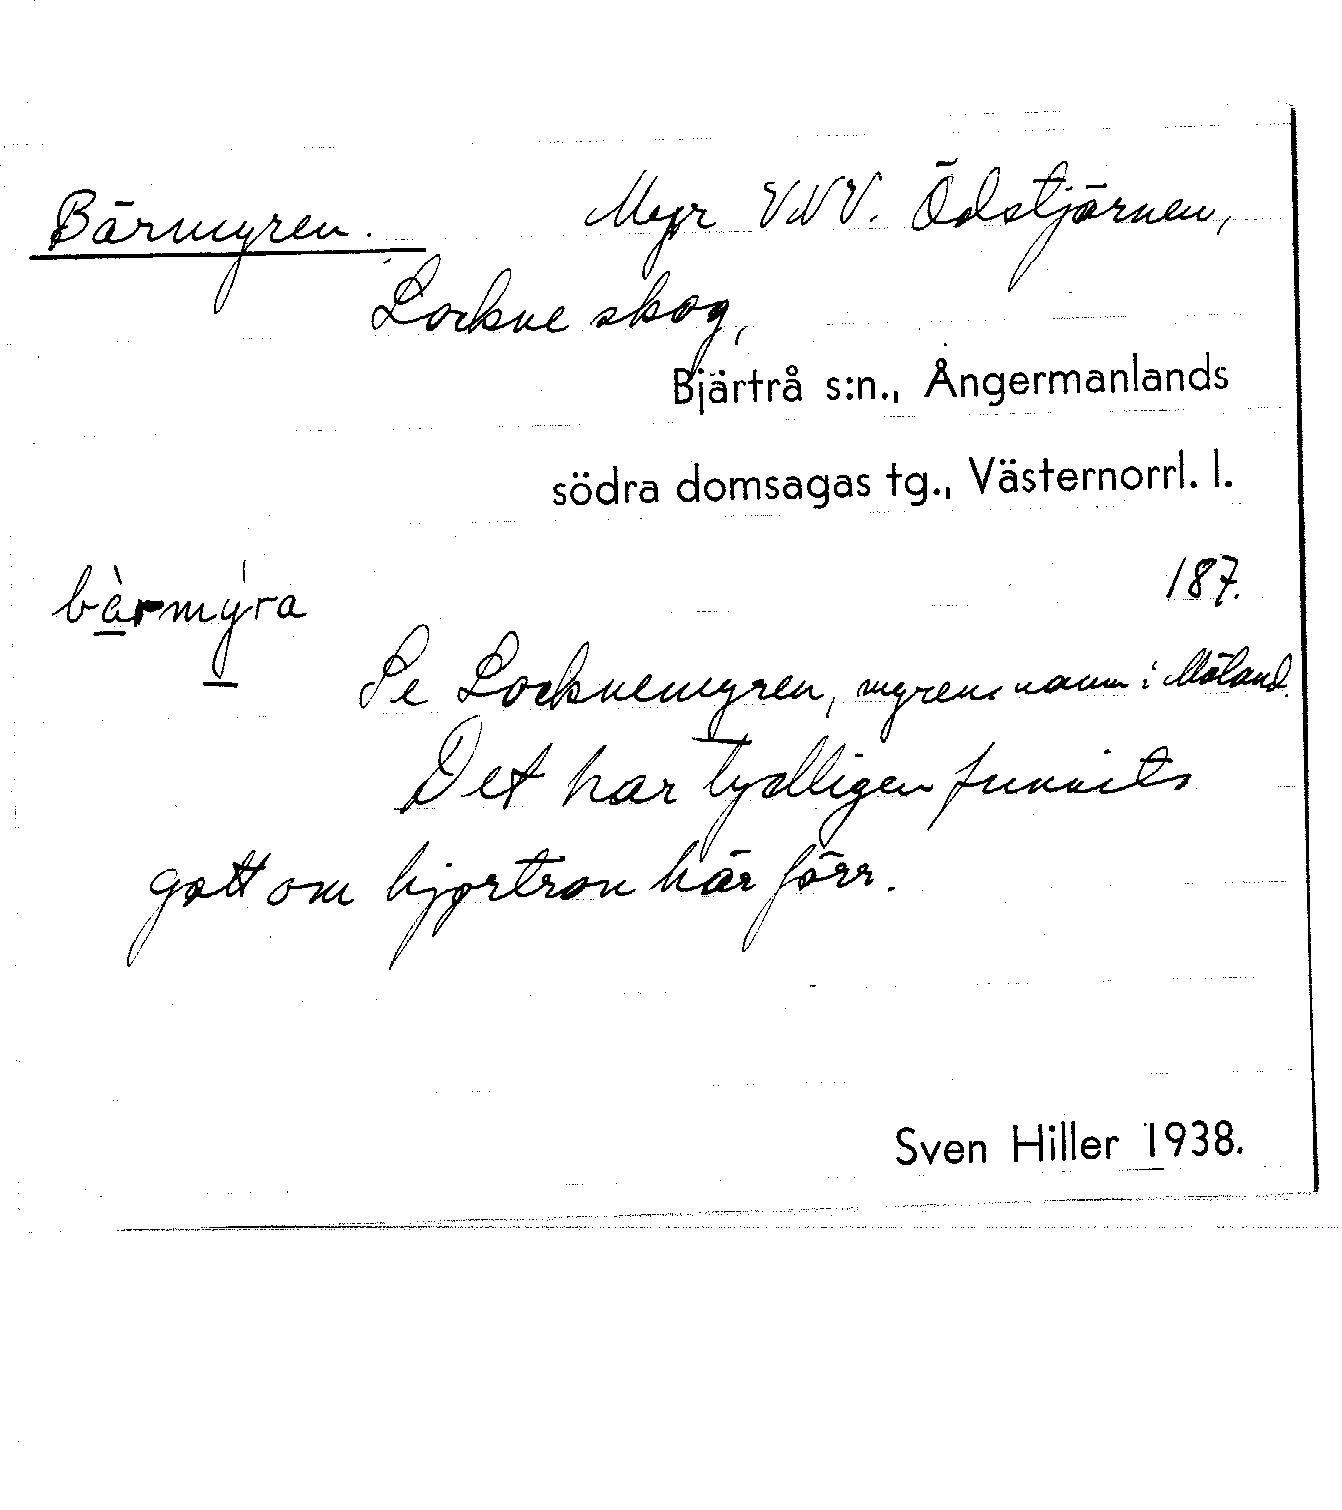 Bärmyren. Myr VNV. Ödstjärnen,
Lockne skog,
Bjärtrå s:n., Ångermanlands
södra domsagas tg., Västernorrl. l.
187.
bàrmýra
Se Locknemyren, myrens namn i Möland.
Det har tydligen funnits
gott om hjortron här förr.
Sven Hiller 1938.